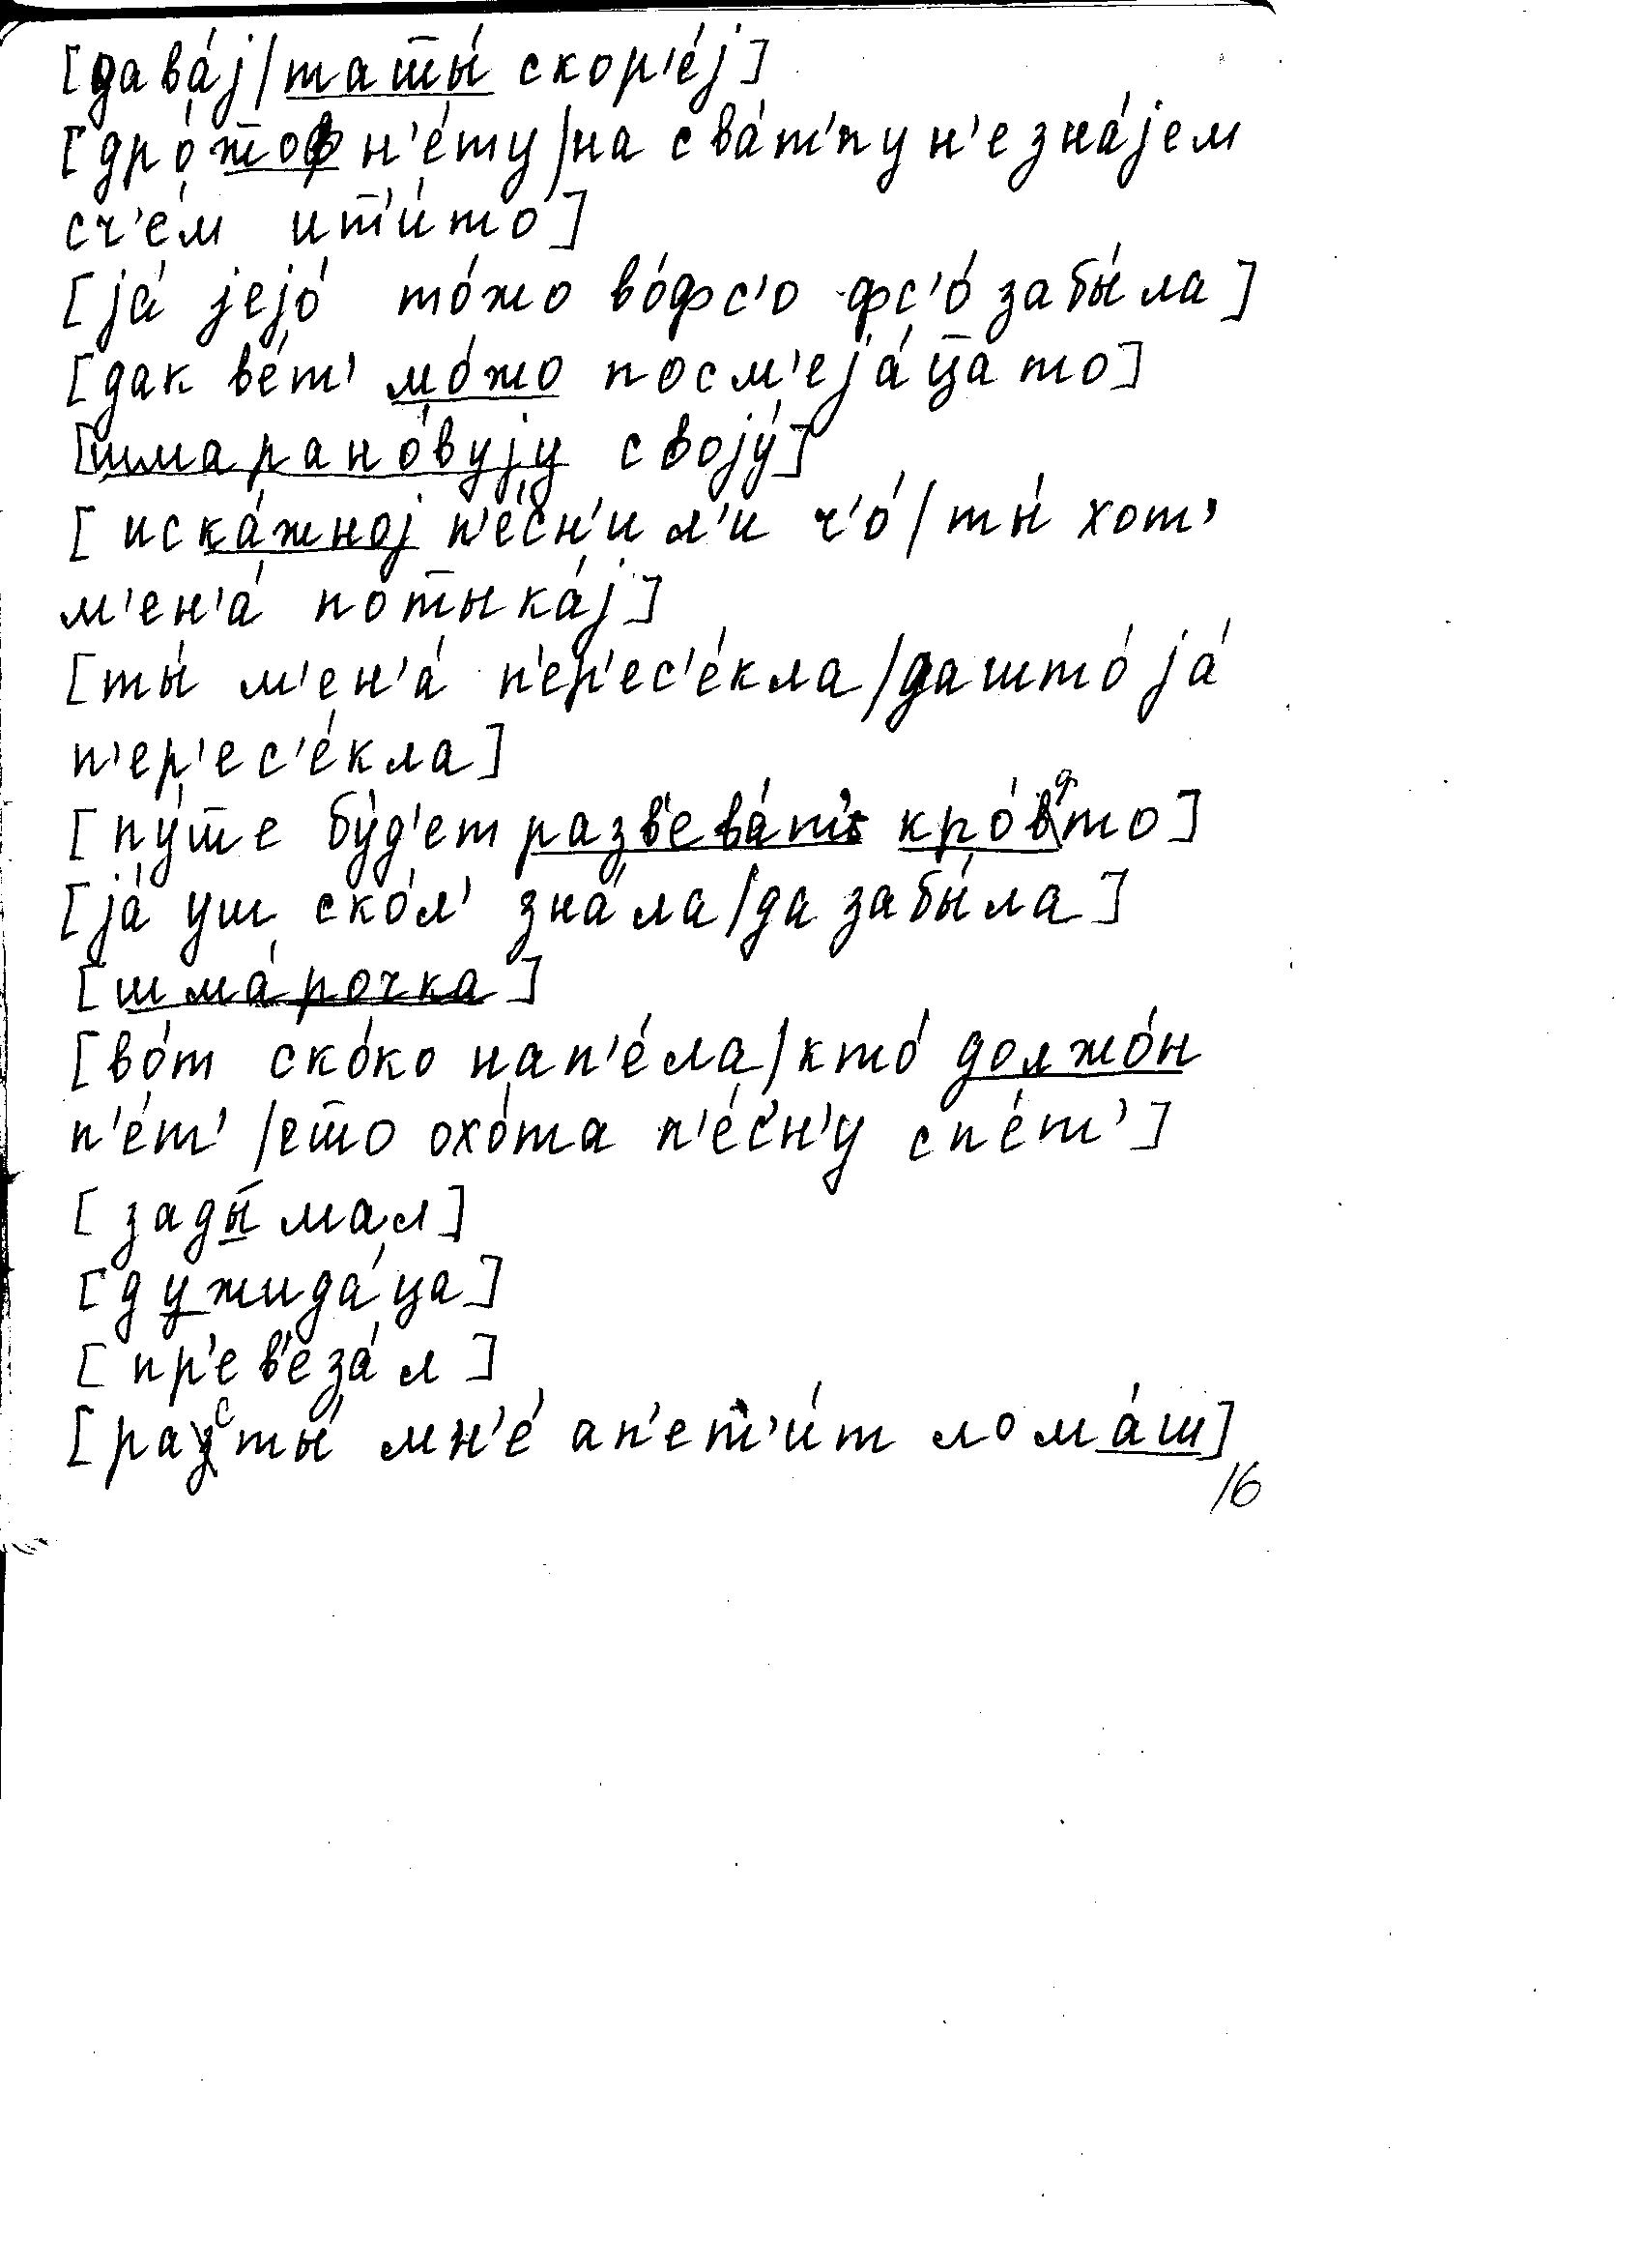 [дава́j/тат̅ы́ скор'е́j]
[дро́т̅оф н'е́ту/на сва́т'пу н'е зна́jем
сч'е́м ит̅'и́то]
[jа́ jеjо́ то́жо во́фс'о фс'о́ забы́ла]
[дак ве́т' мо́жо посм'еjа́ц̅а то]
[шмарано́вуjу своjу́]
[иска́жноj п'е́с'н'и л'и ч'о́/ты́ хот'
м'ен'а́ пот̅ыка́j]
[ты́ м'ен'а́ п'ер'ес'е́кла/да што́ jа́
п'ер'ес'е́кла]
[пу́т̅е бу́д'ет разв'ева́т' кро́в'то]
[jа́ уш ско́л' зна́ла/да забы́ла]
[шма́рочка]
[во́т ско́ко нап'е́ла/кто́ должо́н
п'е́т'/ет̅о охо́та п'е́с'н'у спе́т']
[зады́мал]
[дужида́ца]
[пр'ев'еза́л]
[расты́ мн'е́ ап'ет̅'и́т лома́ш]
16